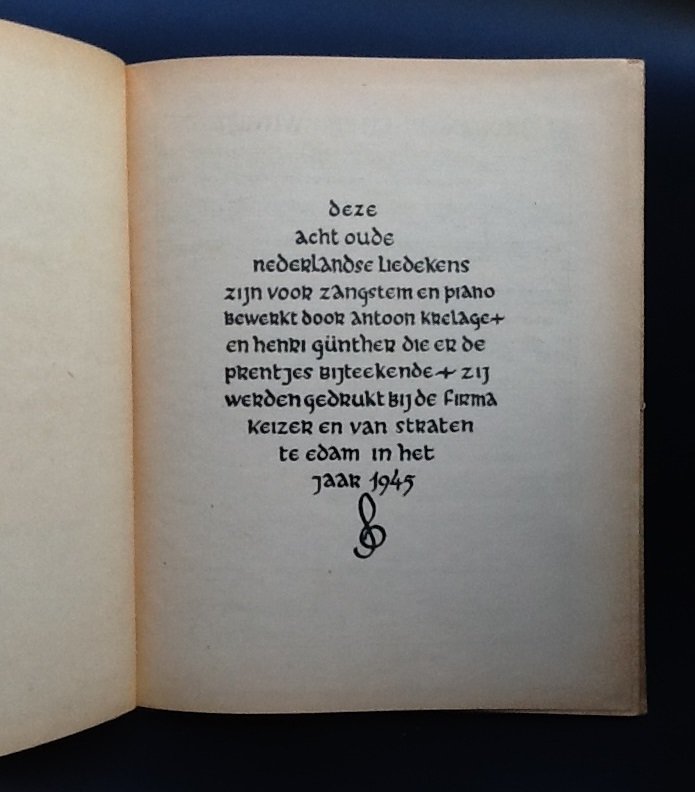 deze
acht oude
nederlandse liedekens
zijn voor zangstem en piano
bewerkt door antoon krelage+
en henri günther die er de
prentjes bijteekende+ zij
werden gedrukt bij de firma
keizer en van straten
te edam in het
jaar 1945